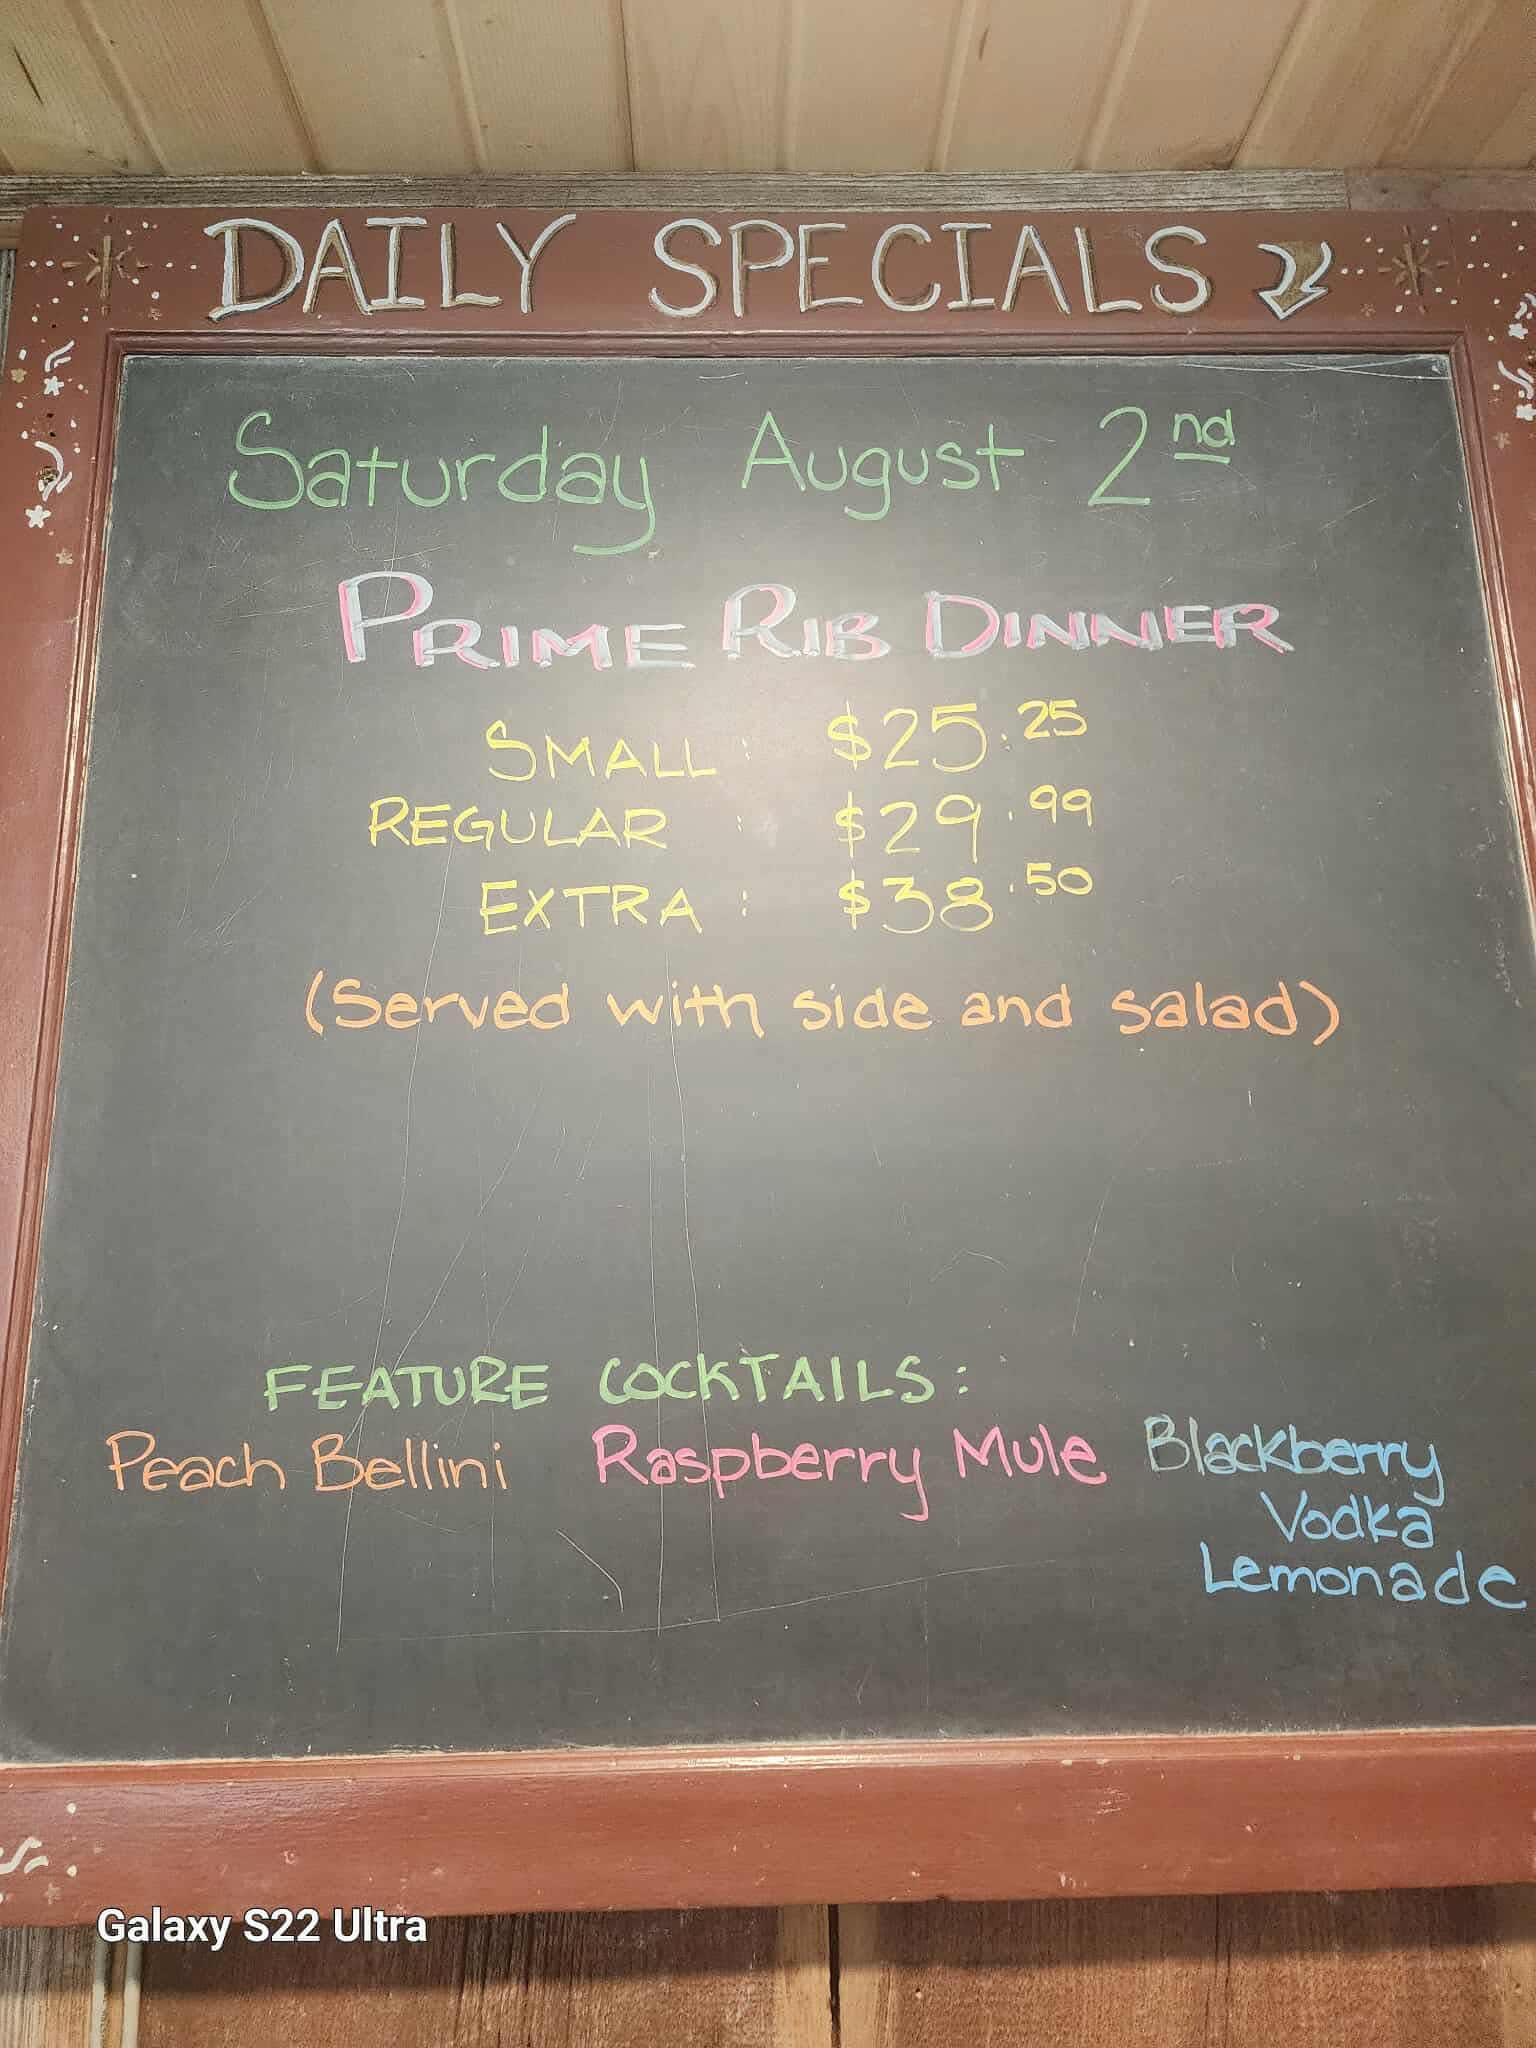 DAILY SPECIALS
Saturday August 2nd
PRIME RIB DINNER
SMALL : $25.25
REGULAR : $29.99
EXTRA : $38.50
(Served with side and salad)
FEATURE COCKTAILS:
Peach Bellini Raspberry Mule Blackberry
Vodka
Lemonade
Galaxy S22 Ultra